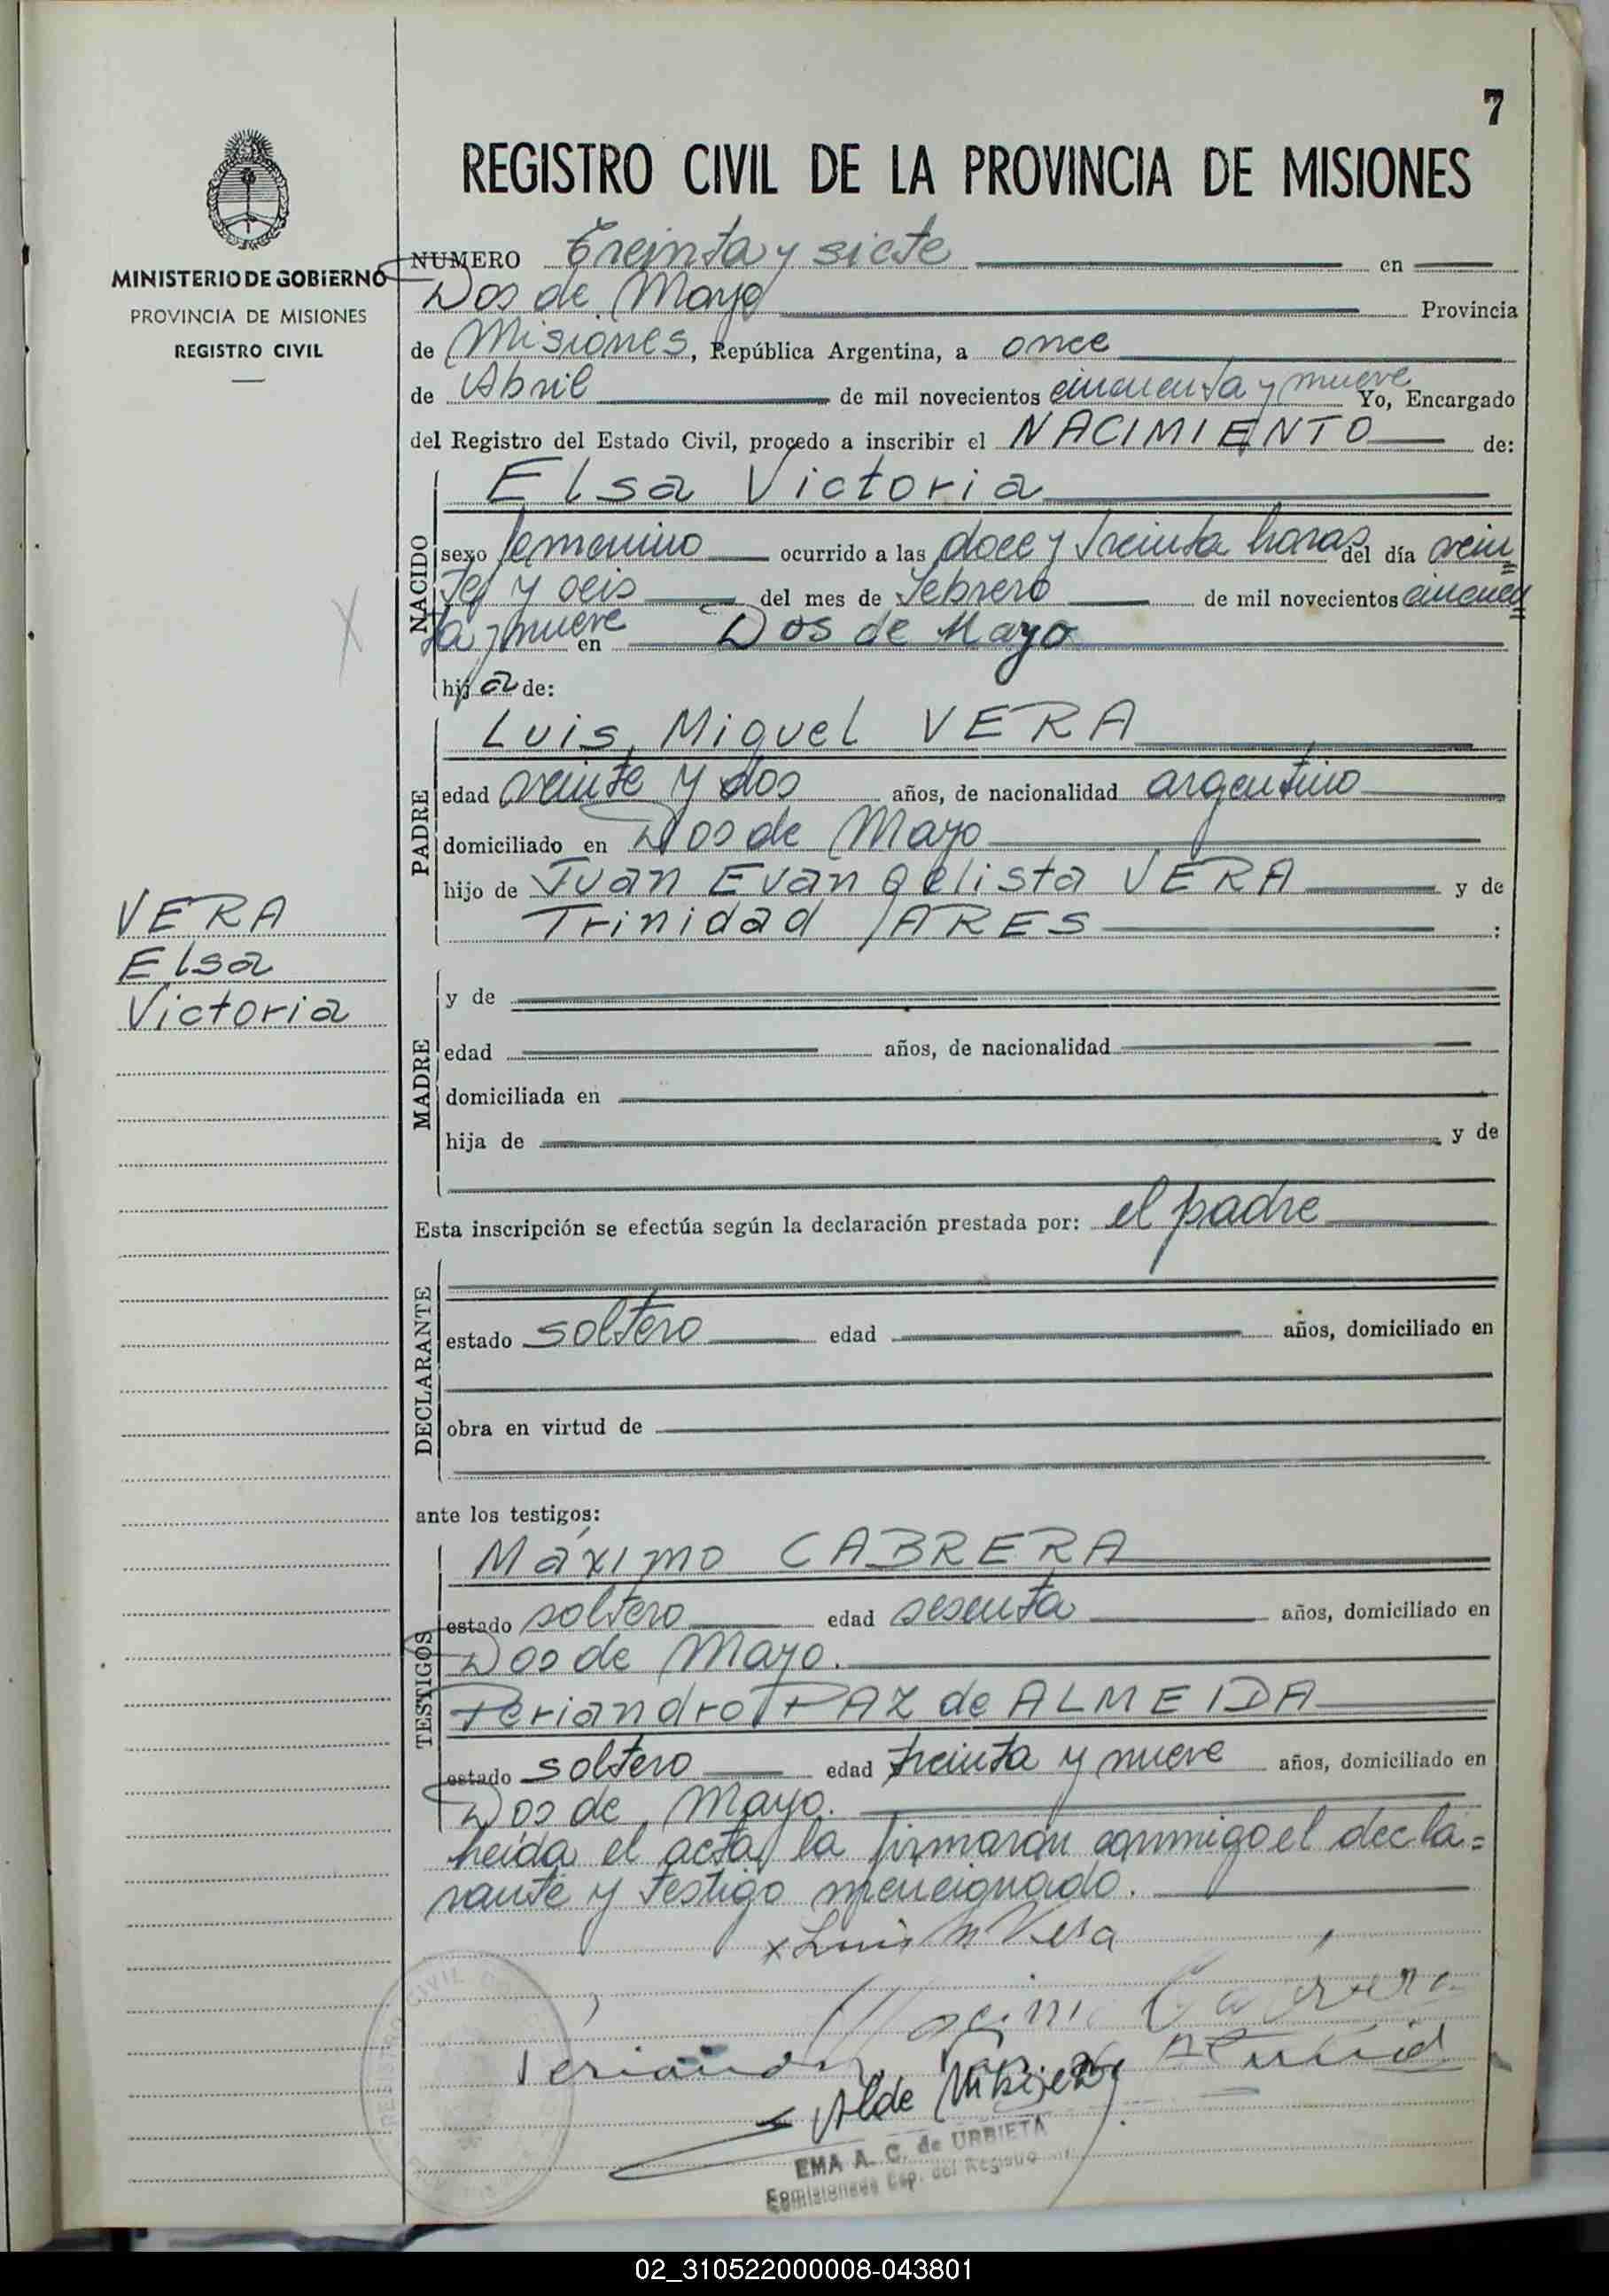 7
REGISTRO CIVIL DE LA PROVINCIA DE MISIONES
MINISTERIO DE GOBIERNO
PROVINCIA DE MISIONES
REGISTRO CIVIL
NUMERO Treinta y siete en
Dos de Mayo Provincia
de Misiones, República Argentina, a once
de Abril de mil novecientos cincuenta y nueve Yo, Encargado
del Registro del Estado Civil, procedo a inscribir el NACIMIENTO de:
NACIDO
Elsa Victoria
sexo femenino ocurrido a las doce y treinta horas del día vein=
te y seis del mes de Febrero de mil novecientos cincuen=
ta y nueve en Dos de Mayo
hija de:
PADRE
Luis Miguel VERA
edad veinte y dos años, de nacionalidad argentino
domiciliado en Dos de Mayo
hijo de Juan Evangelista VERA y de
Trinidad JARES :
VERA
Elsa
Victoria
MADRE
y de
edad años, de nacionalidad
domiciliada en
hija de y de
Esta inscripción se efectúa según la declaración prestada por: el padre
DECLARANTE
estado soltero edad años, domiciliado en
obra en virtud de
ante los testigos:
TESTIGOS
Máximo CABRERA
estado soltero edad sesenta años, domiciliado en
Dos de Mayo.
Periandro PAZ de ALMEIDA
estado soltero edad treinta y nueve años, domiciliado en
Dos de Mayo.
Leída el acta, la firmarán conmigo el decla=
rante y testigo mencionado.
x Luis M Vera
EMA A. C. de URBIETA
del Registro
02_310522000008-043801